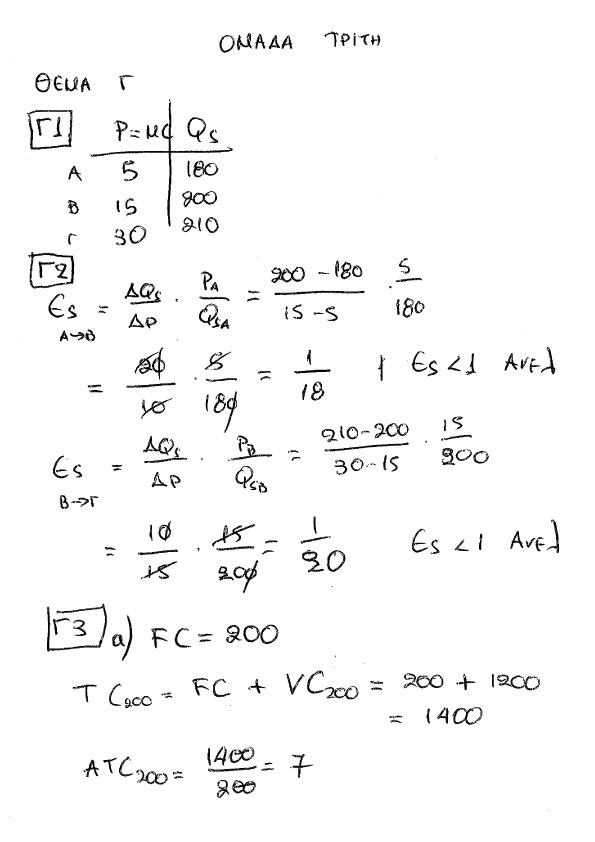 ΟΜΑΔΑ ΤΡΙΤΗ
ΘΕΜΑ Γ
Γ1 P=MC Qs
A 5 180
B 15 200
Γ 30 210
Γ2
Es A→B = ΔQs/ΔP · PA/QsA = 200-180/15-5 · 5/180
= 20/10 · 5/180 = 1/18 Es<1 Ανελ
Es B→Γ = ΔQs/ΔP · PB/QsB = 210-200/30-15 · 15/200
= 10/15 · 15/200 = 1/20 Es<1 Ανελ
Γ3 α) FC = 200
TC200 = FC + VC200 = 200 + 1200
= 1400
ATC200 = 1400/200 = 7